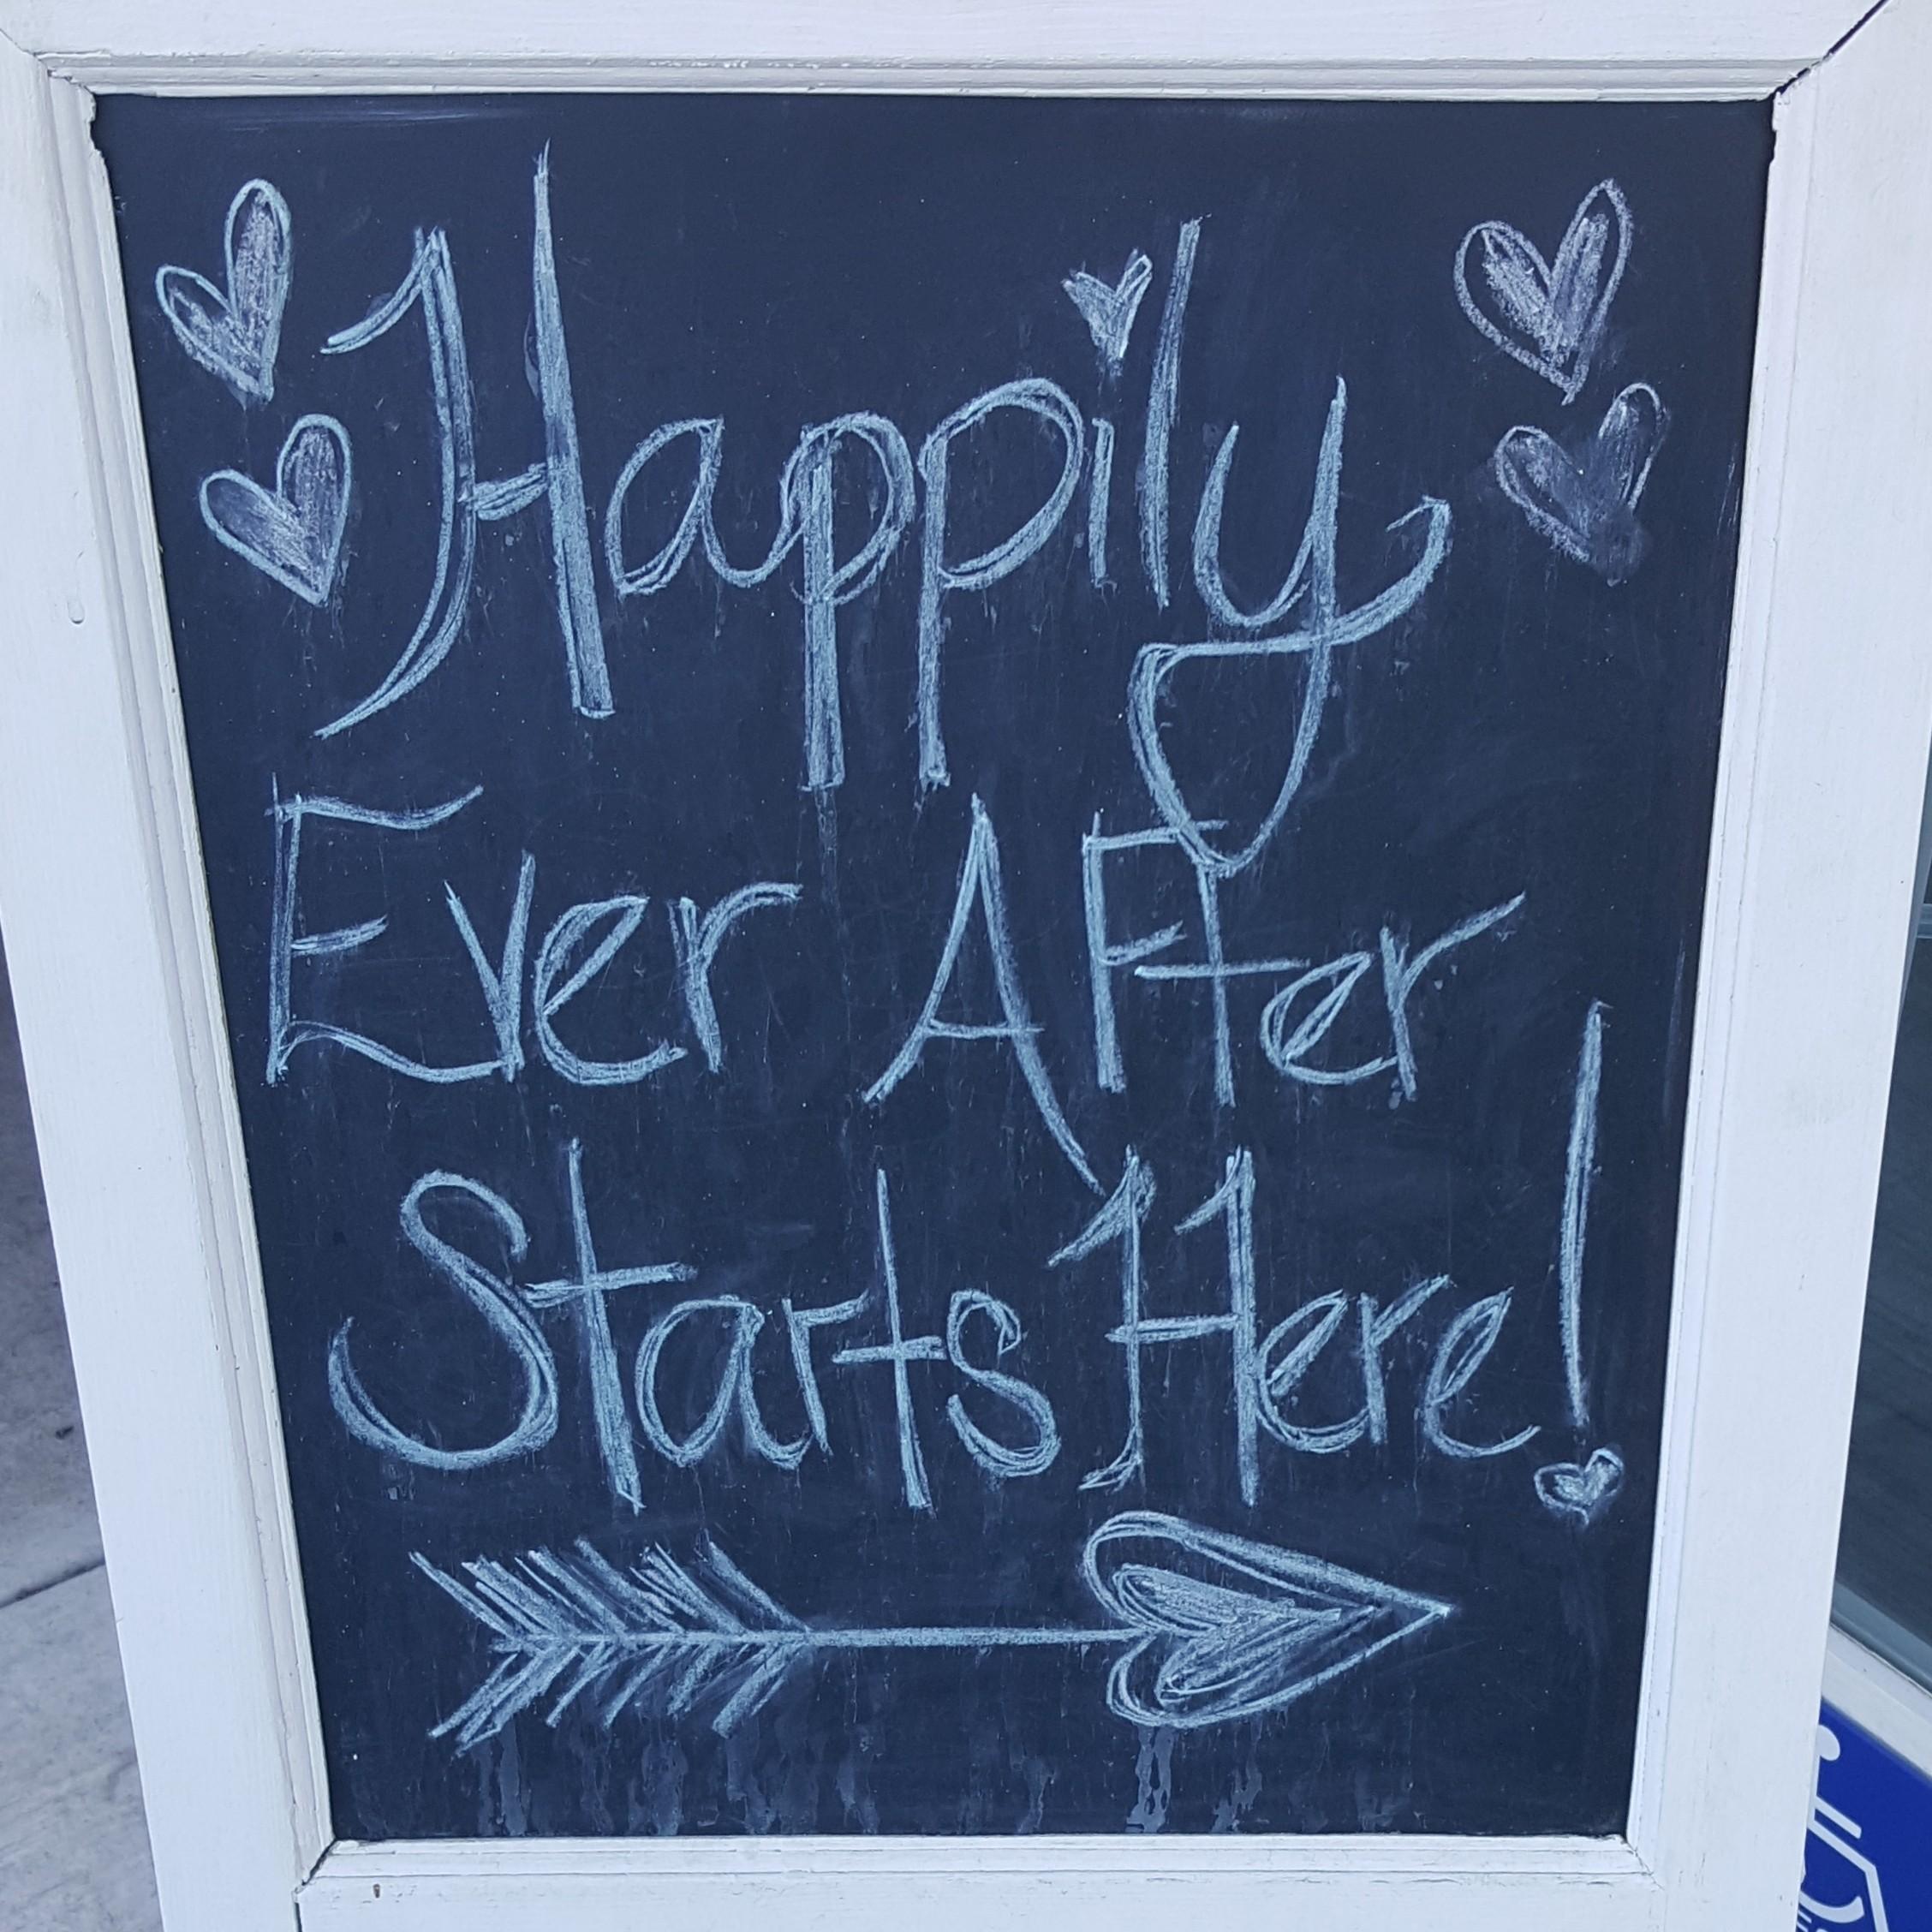 Happily
Ever After
Starts Here!